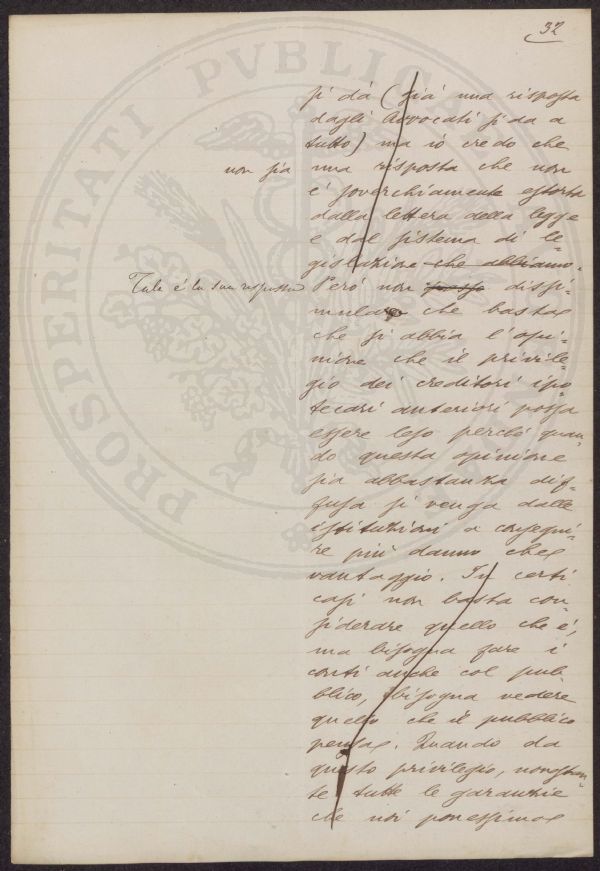 32
si dà (già una risposta
dagli Avvocati si dà a
tutto) ma io credo che
non sia
una risposta che non
è soverchiamente estorta
dalla lettera della legge
e dal sistema di le-
gislazione che abbiamo.
Tale è la sua risposta
Però non posso dissi-
mulare che basta
che si abbia l'opi-
nione che il privile-
gio dei creditori ipo-
tecari anteriori possa
essere leso perché quan-
do questa opinione
sia abbastanza dif-
fusa si venga dalle
istituzioni a consegui-
re più danno che
vantaggio. In certi
casi non basta con-
siderare quello che è,
ma bisogna fare i
conti anche col pub-
blico, bisogna vedere
quello che il pubblico
pensa. Quando da
questo privilegio, nonostan-
te tutte le garanzie
che noi ponessimo
PROSPERITATI PVBLICAE